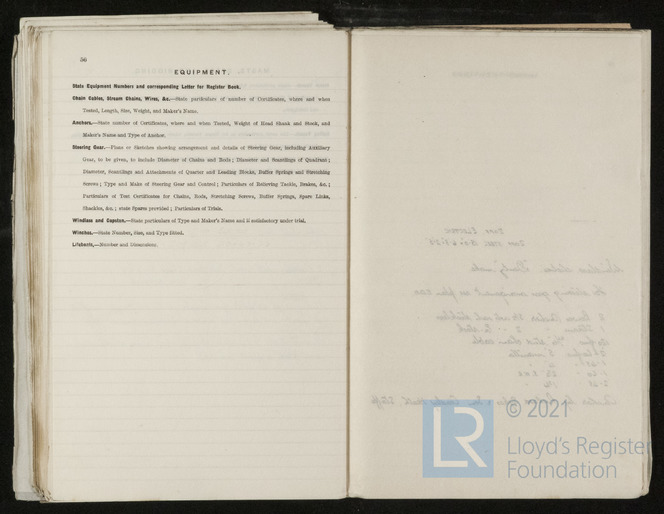 56
EQUIPMENT.
State Equipment Numbers and corresponding Letter for Register Book.
Chain Cables, Stream Chains, Wires, &c.—State particulars of number of Certificates, where and when
Tested, Length, Size, Weight, and Maker's Name.
Anchors.—State number of Certificates, where and when Tested, Weight of Head Shank and Stock, and
Maker's Name and Type of Anchor.
Steering Gear.—Plans or Sketches showing arrangement and details of Steering Gear, including Auxiliary
Gear, to be given, to include Diameter of Chains and Rods; Diameter and Scantlings of Quadrant;
Diameter, Scantlings and Attachments of Quarter and Leading Blocks, Buffer Springs and Stretching
Screws; Type and Make of Steering Gear and Control; Particulars of Relieving Tackle, Brakes, &c.;
Particulars of Test Certificates for Chains, Rods, Stretching Screws, Buffer Springs, Spare Links,
Shackles, &c.; state Spares provided; Particulars of Trials.
Windlass and Capstan.—State particulars of Type and Maker's Name and if satisfactory under trial.
Winches.—State Number, Size, and Type fitted.
Lifeboats.—Number and Dimensions.
LR
© 2021
Lloyd's Register
Foundation